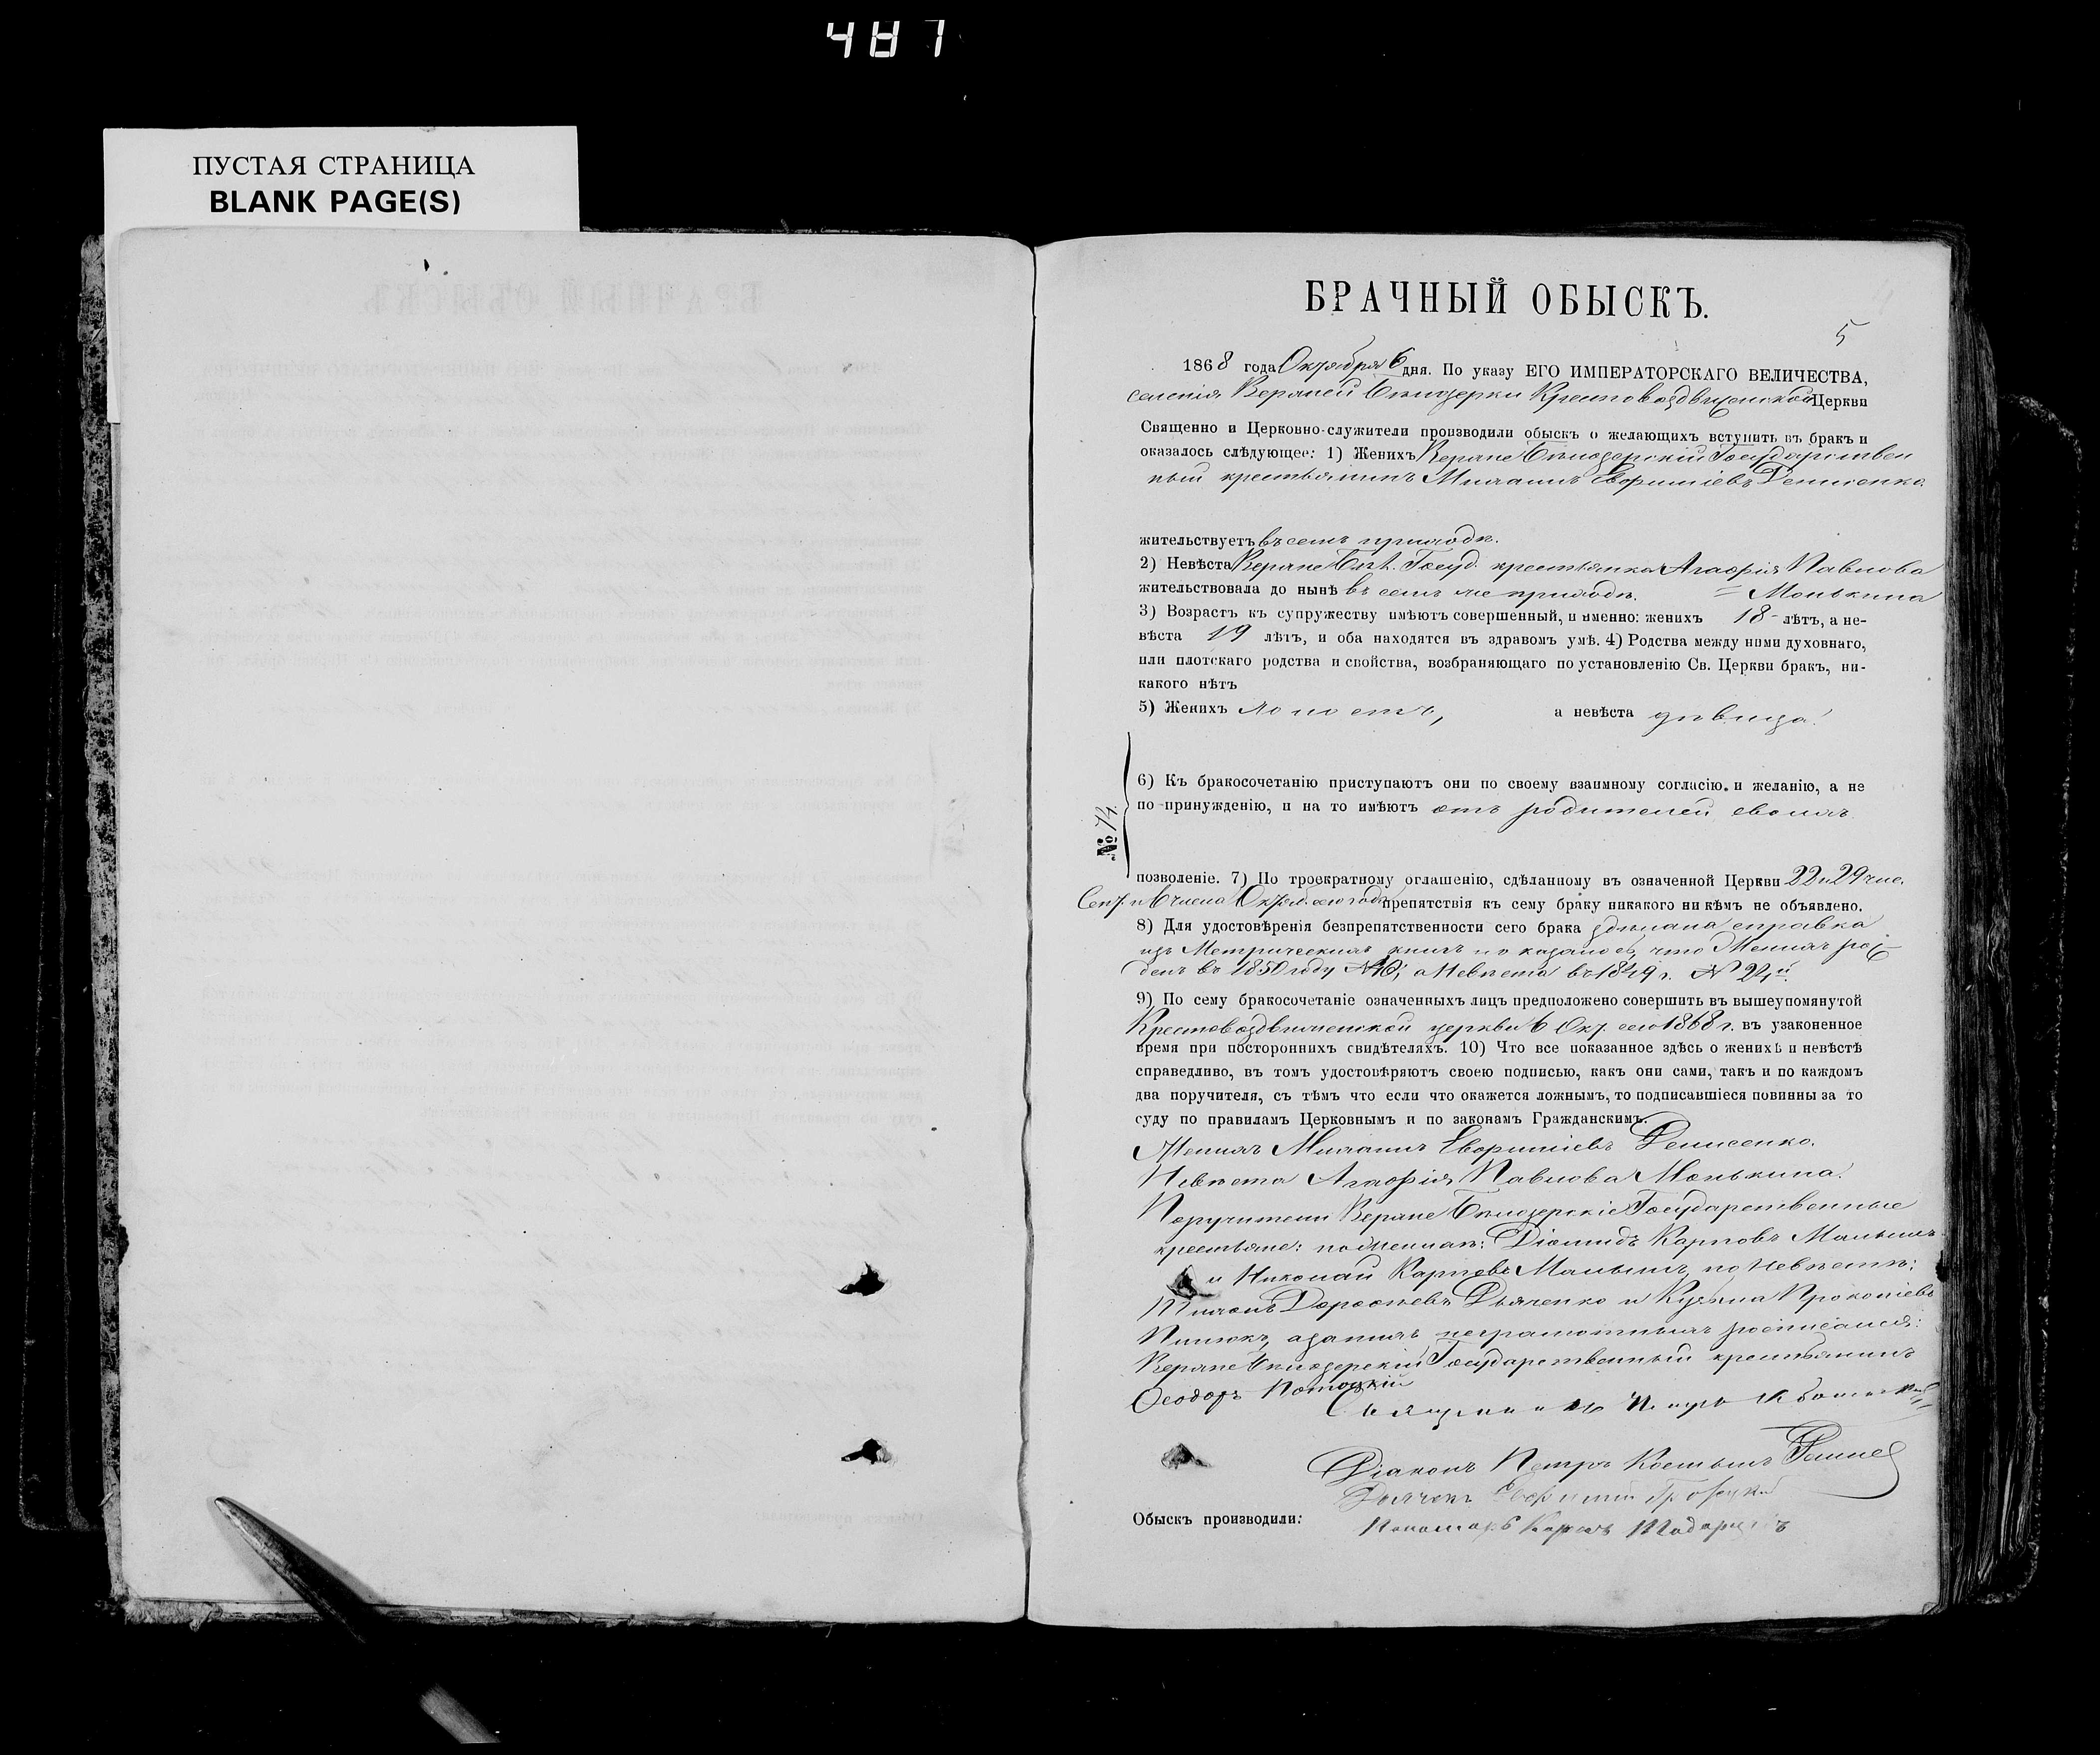 487
ПУСТАЯ СТРАНИЦА
BLANK PAGE(S)
БРАЧНЫЙ ОБЫСКЪ.
5
1868 года Октября 6 дня. По указу ЕГО ИМПЕРАТОРСКАГО ВЕЛИЧЕСТВА,
селенія Верхней Бѣлозерки Крестовоздвиженской Церкви
Священно и Церковно-служители производили обыскъ о желающихъ вступить въ бракъ и
оказалось слѣдующее: 1) Женихъ Верхне Бѣлозерскій Государствен
ный крестьянинъ Михаилъ Евфиміевъ Денисенко.
жительствуетъ въ семъ приходѣ.
2) Невѣста Верхне Бѣл. Госуд. крестьянка Агафія Павлова
жительствовала до нынѣ въ семъ же приходѣ. = Монькина
3) Возрастъ къ супружеству имѣютъ совершенный, и именно: женихъ 18 лѣтъ, а не-
вѣста 19 лѣтъ, и оба находятся въ здравомъ умѣ. 4) Родства между ними духовнаго,
или плотскаго родства и свойства, возбраняющаго по установленію Св. Церкви бракъ, ни-
какого нѣтъ
5) Женихъ холостъ, а невѣста дѣвица.
№ 14.
6) Къ бракосочетанію приступаютъ они по своему взаимному согласію и желанію, а не
по принужденію, и на то имѣютъ отъ родителей своихъ
позволеніе. 7) По троекратному оглашенію, сдѣланному въ означенной Церкви 22 и 29 чис.
Сент. и 6 числа Октяб. сего года препятствія къ сему браку никакого ни кѣмъ не объявлено.
8) Для удостовѣренія безпрепятственности сего брака сдѣлана справка
изъ Метрическихъ книгъ и оказалось, что Женихъ рож
денъ въ 1850 году а Невѣста въ 1849 г. № 24й.
9) По сему бракосочетаніе означенныхъ лицъ предположено совершить въ вышеупомянутой
Крестовоздвиженской церкви 6 Окт. сего 1868 г. въ узаконенное
время при постороннихъ свидѣтеляхъ. 10) Что все показанное здѣсь о женихѣ и невѣстѣ
справедливо, въ томъ удостовѣряютъ своею подписью, какъ они сами, такъ и по каждомъ
два поручителя, съ тѣмъ что если что окажется ложнымъ, то подписавшіеся повинны за то
суду по правиламъ Церковнымъ и по законамъ Гражданскимъ.
Женихъ Михаилъ Евфиміевъ Денисенко.
Невѣста Агафія Павлова Монькина.
Поручители Верхне Бѣлозерскіе Государственные
крестьяне: по Женихѣ: Діомидъ Карповъ Малышъ
и Николай Карповъ Малышъ, по Невѣстѣ:
Дороѳѣевъ Дьяченко и Кузьма Прокопіевъ
а за нихъ неграмотныхъ росписался:
Верхне Бѣлозерскій Государственный крестьянинъ
Ѳеодоръ Потоцкій
Священникъ Петръ
Діаконъ Петръ
Дьячекъ Евфимій
Обыскъ производили: Пономарь